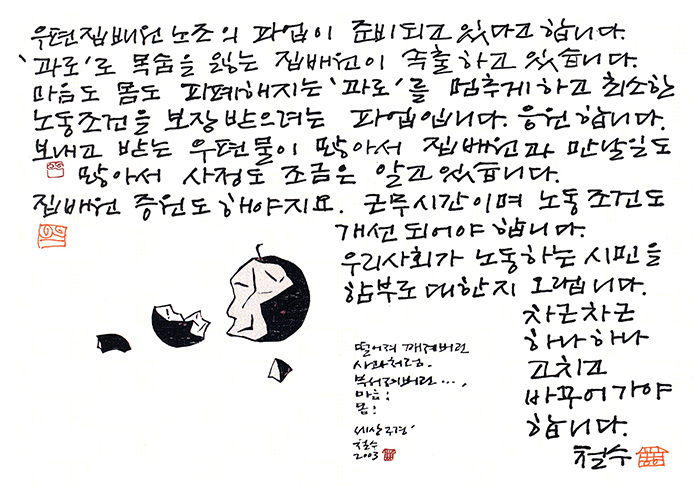 우편집배원 노조의 파업이 준비되고 있다고 합니다.
'과로'로 목숨을 잃는 집배원이 속출하고 있습니다.
마음도 몸도 피폐해지는 '과로'를 멈추게 하고 최소한
노동조건을 보장 받으려는 파업입니다. 응원합니다.
보내고 받는 우편물이 많아서 집배원과 만날일도
많아서 사정도 조금은 알고 있습니다.
집배원 증원도 해야지요. 근무시간이며 노동조건도
개선되어야 합니다.
우리사회가 노동하는 시민을
함부로 대한지 오랩니다.
차근차근
하나하나
고치고
바꾸어가야
합니다.
철수
떨어져 깨져버린
사과처럼.
부서져버린 ...,
마음!
몸!
세상구경'
철수
2003